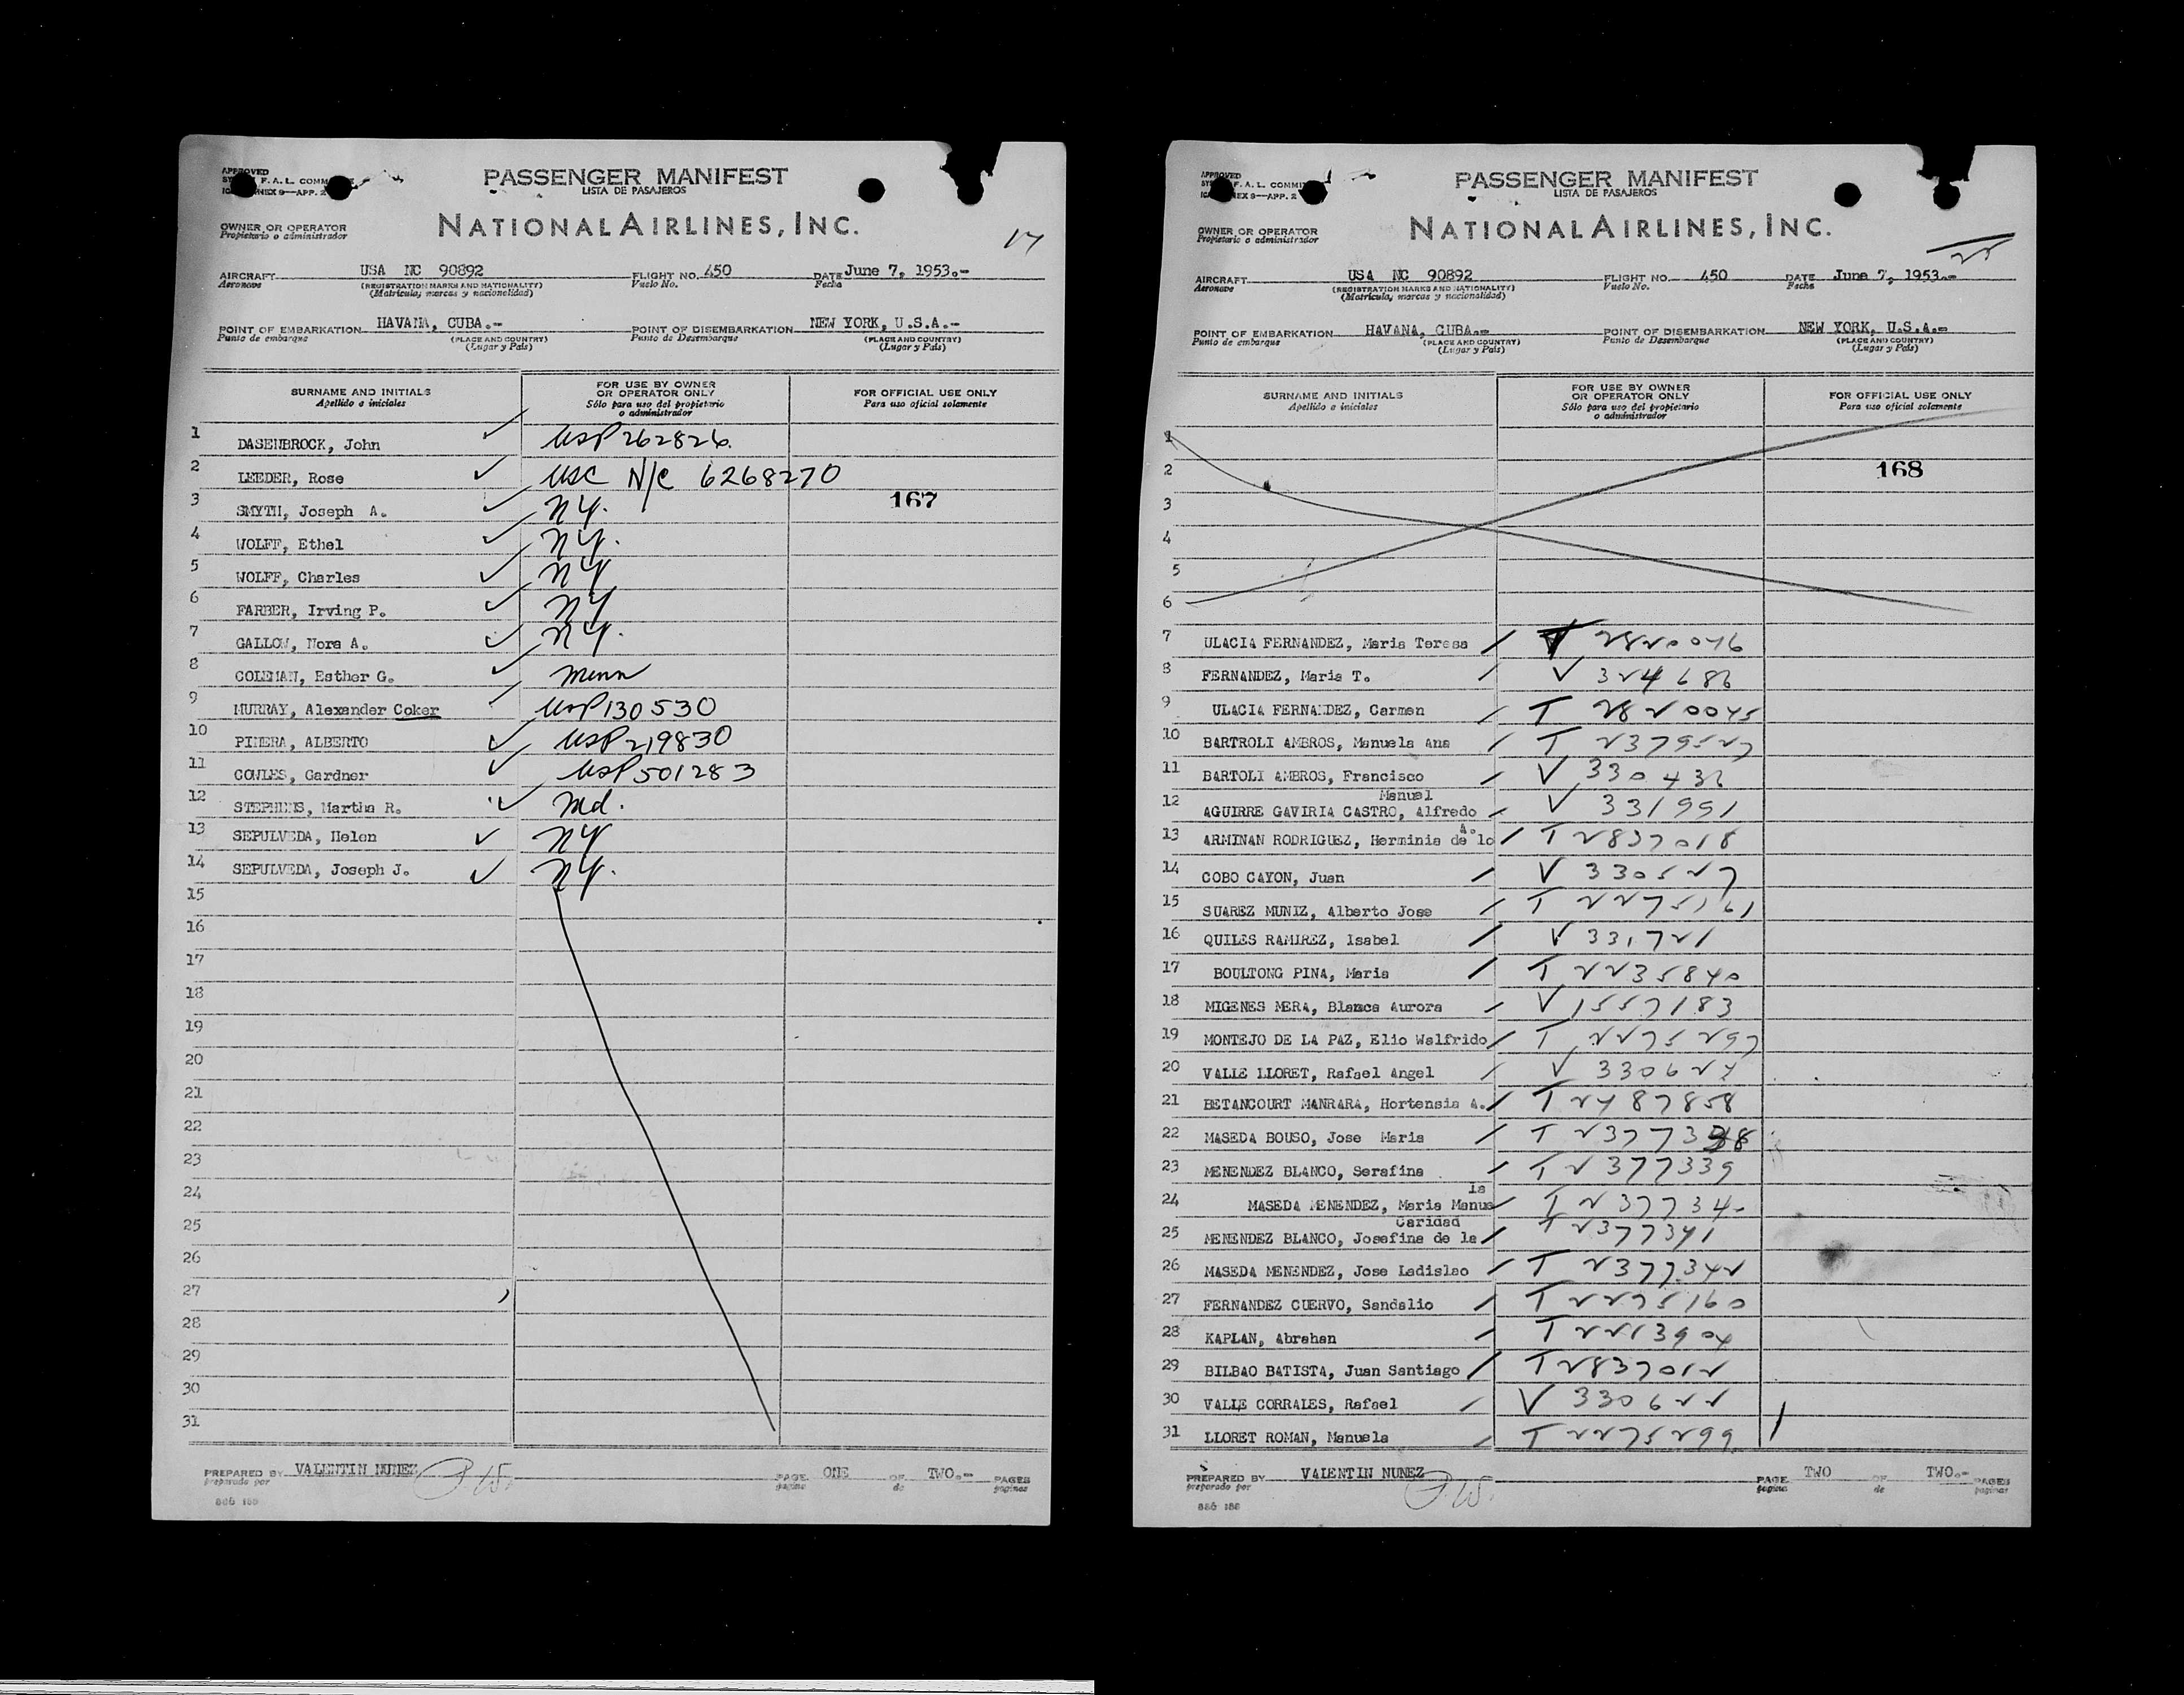 APPROVED
F. A. L. COMM
ANNEX 9—APP. 2
PASSENGER MANIFEST
LISTA DE PASAJEROS
OWNER OR OPERATOR
Propietario o administrador
NATIONAL AIRLINES, INC.
17
AIRCRAFT USA NC 90892 FLIGHT NO. 450 DATE June 7, 1953.-
Aeronave (REGISTRATION MARKS AND NATIONALITY) Vuelo No. Fecha
(Matricula, marcas y nacionalidad)
POINT OF EMBARKATION HAVANA, CUBA.- POINT OF DISEMBARKATION NEW YORK, U.S.A.-
Punto de embarque (PLACE AND COUNTRY) Punto de Desembarque (PLACE AND COUNTRY)
(Lugar y Pais) (Lugar y Pais)
SURNAME AND INITIALS FOR USE BY OWNER OR OPERATOR ONLY FOR OFFICIAL USE ONLY
Apellido e iniciales Sólo para uso del propietario o administrador Para uso oficial solamente
1 DASENBROCK, John ✓ USP 262826
2 LEEDER, Rose ✓ USC N/C 6268270
3 SMYTH, Joseph A. ✓ NY. 167
4 WOLFF, Ethel ✓ NY.
5 WOLFF, Charles ✓ NY
6 FARBER, Irving P. ✓ NY
7 GALLOW, Nora A. ✓ NY.
8 COLEMAN, Esther G. ✓ Minn
9 MURRAY, Alexander Coker ✓ USP 130530
10 PINERA, ALBERTO ✓ USP 219830
11 COWLES, Gardner ✓ USP 501283
12 STEPHENS, Martin R. ✓ Md.
13 SEPULVEDA, Helen ✓ NY
14 SEPULVEDA, Joseph J. ✓ NY.
15
16
17
18
19
20
21
22
23
24
25
26
27
28
29
30
31
PREPARED BY VALENTIN NUNEZ PAGE ONE OF TWO.- PAGES
preparado por pagina de paginas
886 188
APPROVED
F. A. L. COMMI
ANNEX 9—APP. 2
PASSENGER MANIFEST
LISTA DE PASAJEROS
OWNER OR OPERATOR
Propietario o administrador
NATIONAL AIRLINES, INC.
25
AIRCRAFT USA NC 90892 FLIGHT NO. 450 DATE June 7, 1953.-
Aeronave (REGISTRATION MARKS AND NATIONALITY) Vuelo No. Fecha
(Matricula, marcas y nacionalidad)
POINT OF EMBARKATION HAVANA, CUBA.- POINT OF DISEMBARKATION NEW YORK, U.S.A.-
Punto de embarque (PLACE AND COUNTRY) Punto de Desembarque (PLACE AND COUNTRY)
(Lugar y Pais) (Lugar y Pais)
SURNAME AND INITIALS FOR USE BY OWNER OR OPERATOR ONLY FOR OFFICIAL USE ONLY
Apellido e iniciales Sólo para uso del propietario o administrador Para uso oficial solamente
1
2 168
3
4
5
6
7 ULACIA FERNANDEZ, Maria Teresa / T 2820046
8 FERNANDEZ, Maria T. / V 324682
9 ULACIA FERNANDEZ, Carmen / T 2820045
10 BARTROLI AMBROS, Manuela Ana / T 2379527
11 BARTOLI AMBROS, Francisco / V 330432
Manuel
12 AGUIRRE GAVIRIA CASTRO, Alfredo / V 331991
A.
13 ARMINAN RODRIGUEZ, Herminia de lo / T 2837018
14 COBO CAYON, Juan / V 330527
15 SUAREZ MUNIZ, Alberto Jose / T 2275161
16 QUILES RAMIREZ, Isabel / V 331721
17 BOULTONG PINA, Maria / T 2235840
18 MIGENES MERA, Blanca Aurora / V 1557183
19 MONTEJO DE LA PAZ, Elio Walfrido / T 2275297
20 VALLE LLORET, Rafael Angel / V 330624
21 BETANCOURT MANRARA, Hortensia A. / T 2487858
22 MASEDA BOUSO, Jose Maria / T 2377338
23 MENENDEZ BLANCO, Serafina / T 2377339
la
24 MASEDA MENENDEZ, Maria Manue / T 237734-
Caridad
25 MENENDEZ BLANCO, Josefina de la / T 2377341
26 MASEDA MENENDEZ, Jose Ladislao / T 2377342
27 FERNANDEZ CUERVO, Sandalio / T 2275160
28 KAPLAN, Abrahan / T 2213904
29 BILBAO BATISTA, Juan Santiago / T 2837012
30 VALLE CORRALES, Rafael / V 330622
31 LLORET ROMAN, Manuela / T 2275299
PREPARED BY VALENTIN NUNEZ PAGE TWO OF TWO.- PAGES
preparado por pagina de paginas
886 188